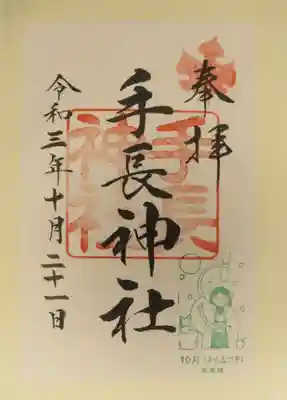 奉拝
手長神社
手長
神社
令和三年十月二十一日